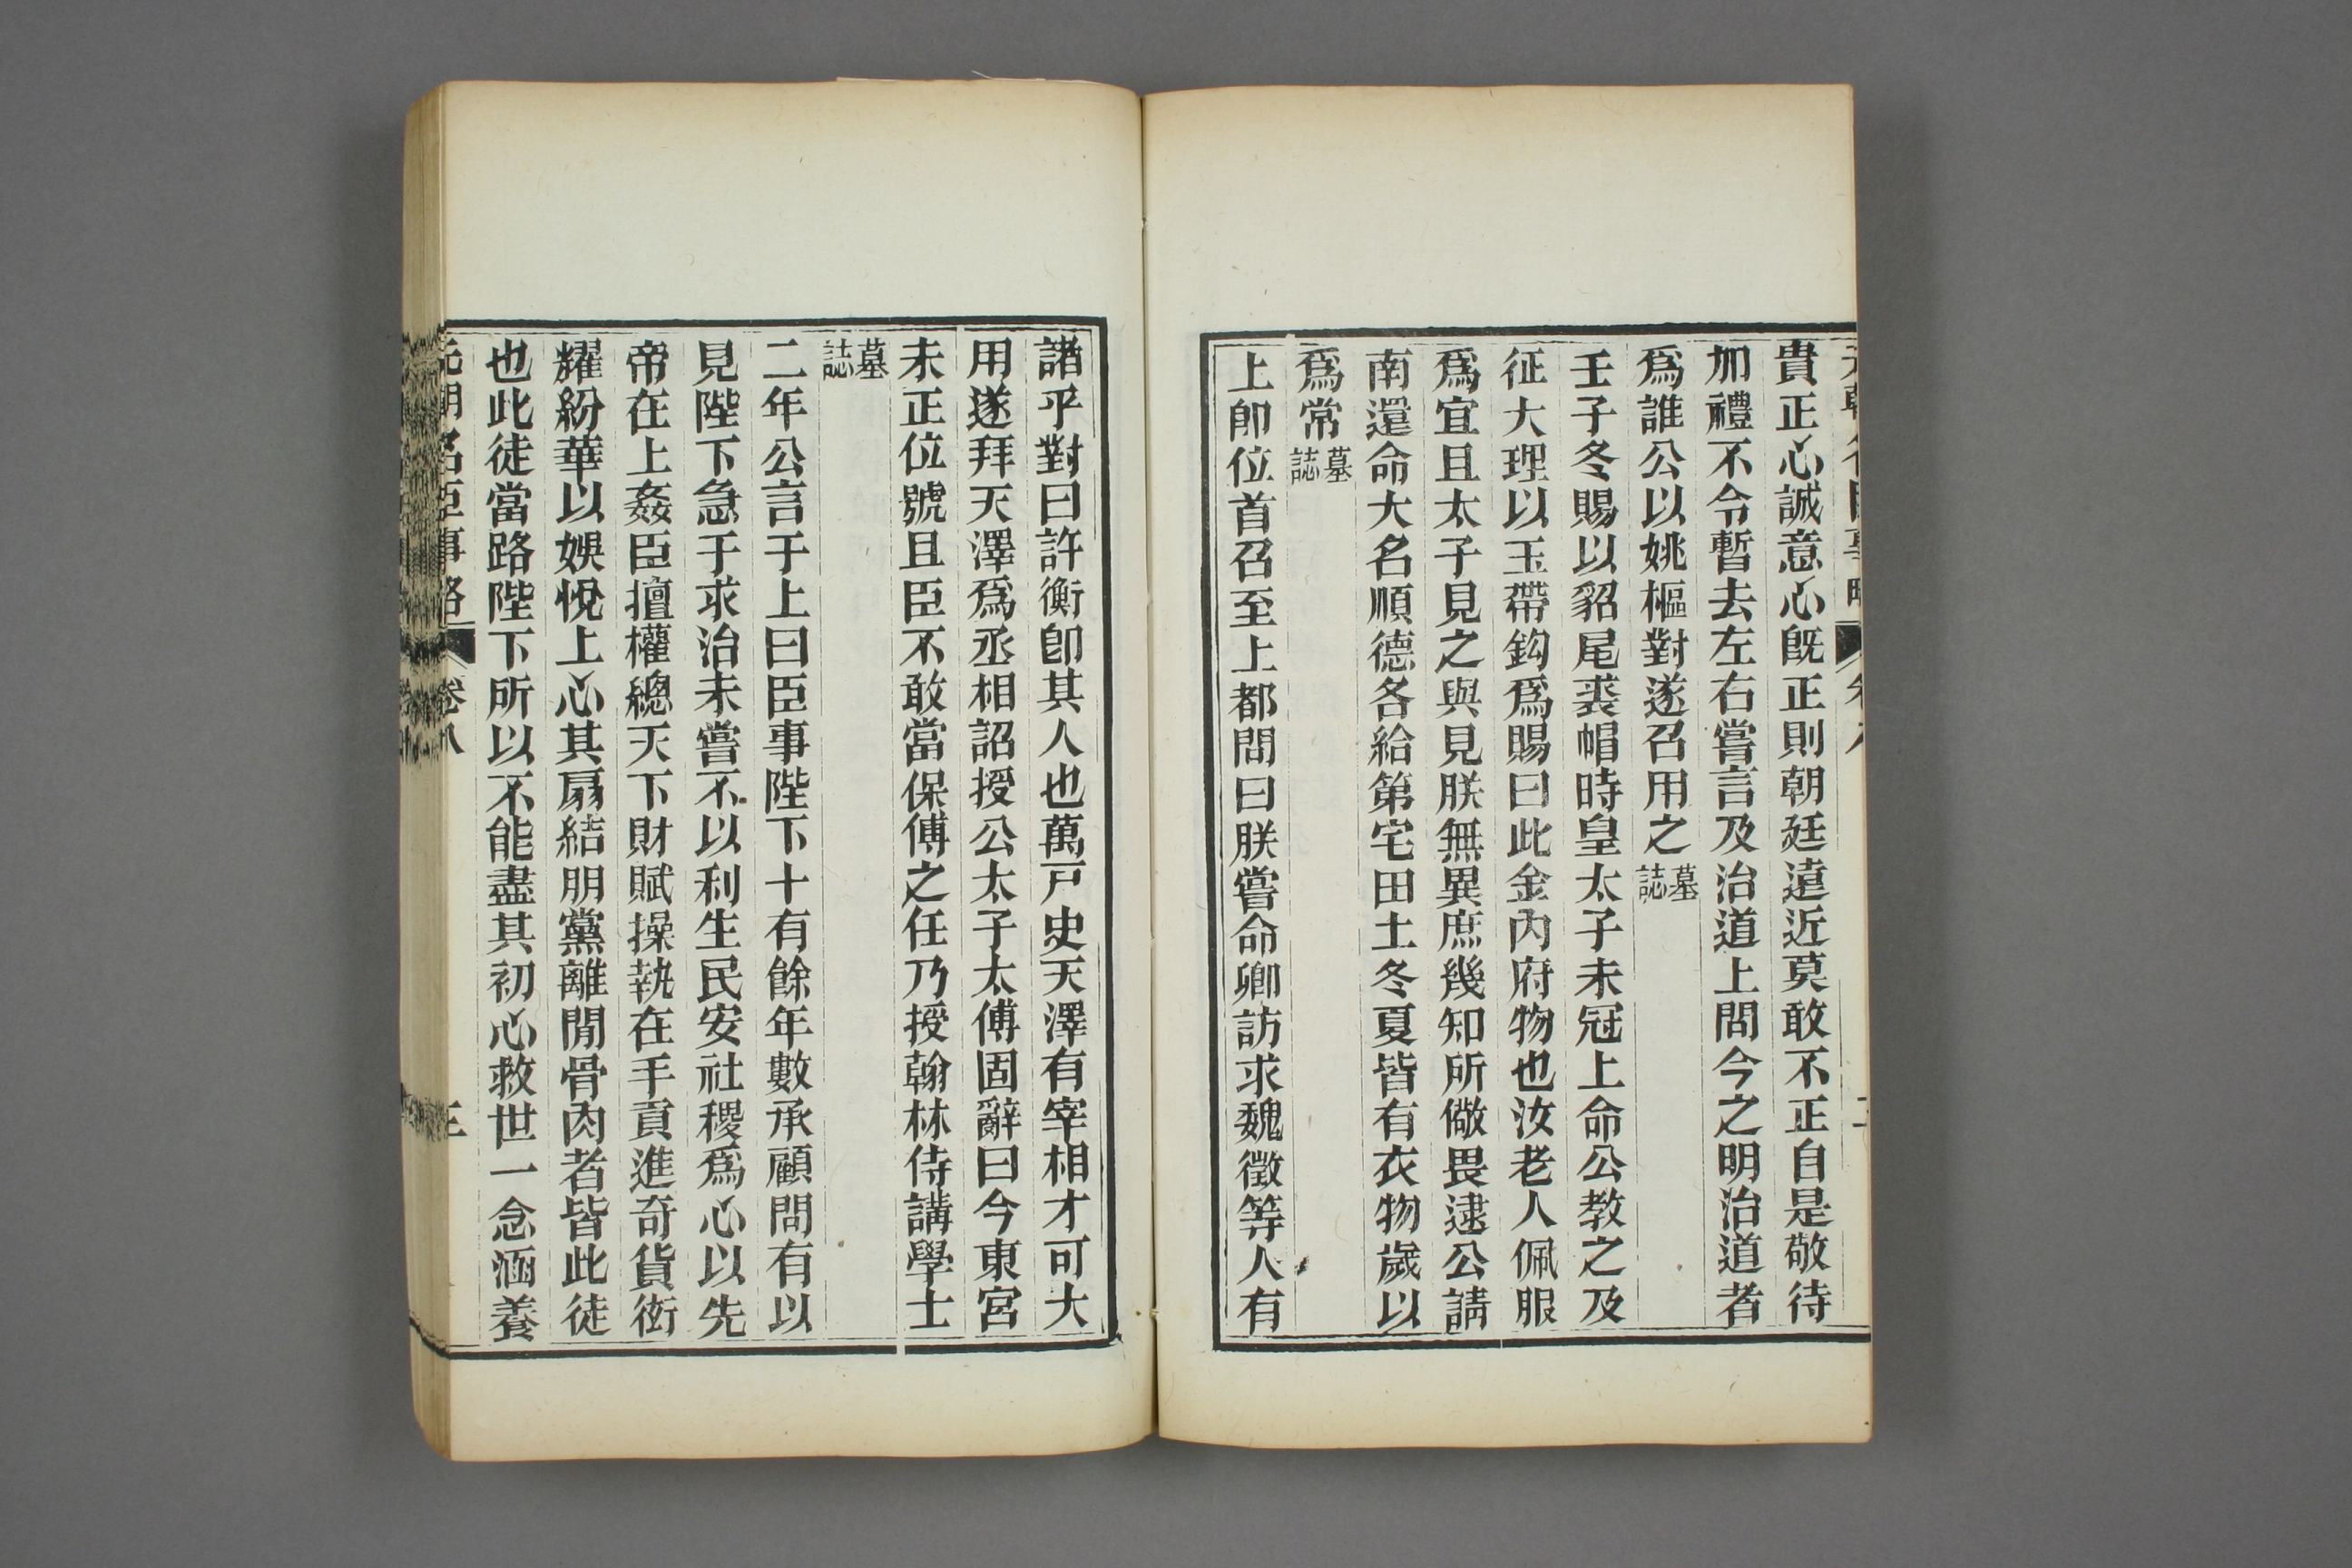 貴正心誠意心旣正則朝廷遠近莫敢不正自是敬待
加禮不令暫去左右嘗言及治道上問今之明治道者
爲誰公以姚樞對遂召用之墓誌
壬子冬賜以貂尾裘帽時皇太子未冠上命公教之及
征大理以玉帶鈎爲賜曰此金內府物也汝老人佩服
爲宜且太子見之與見朕無異庶幾知所儆畏逮公請
南還命大名順德各給第宅田土冬夏皆有衣物歲以
爲常墓誌
上卽位首召至上都問曰朕嘗命卿訪求魏徵等人有
諸乎對曰許衡卽其人也萬戸史天澤有宰相才可大
用遂拜天澤爲丞相詔授公太子太傅固辭曰今東宮
未正位號且臣不敢當保傅之任乃授翰林侍講學士
墓誌
二年公言于上曰臣事陛下十有餘年數承顧問有以
見陛下急于求治未嘗不以利生民安社稷爲心以先
帝在上姦臣擅權總天下財賦操執在手貢進奇貨衒
耀紛華以娛悅上心其扇結朋黨離閒骨肉者皆此徒
也此徒當路陛下所以不能盡其初心救世一念涵養
元朝名臣事略 卷八 三